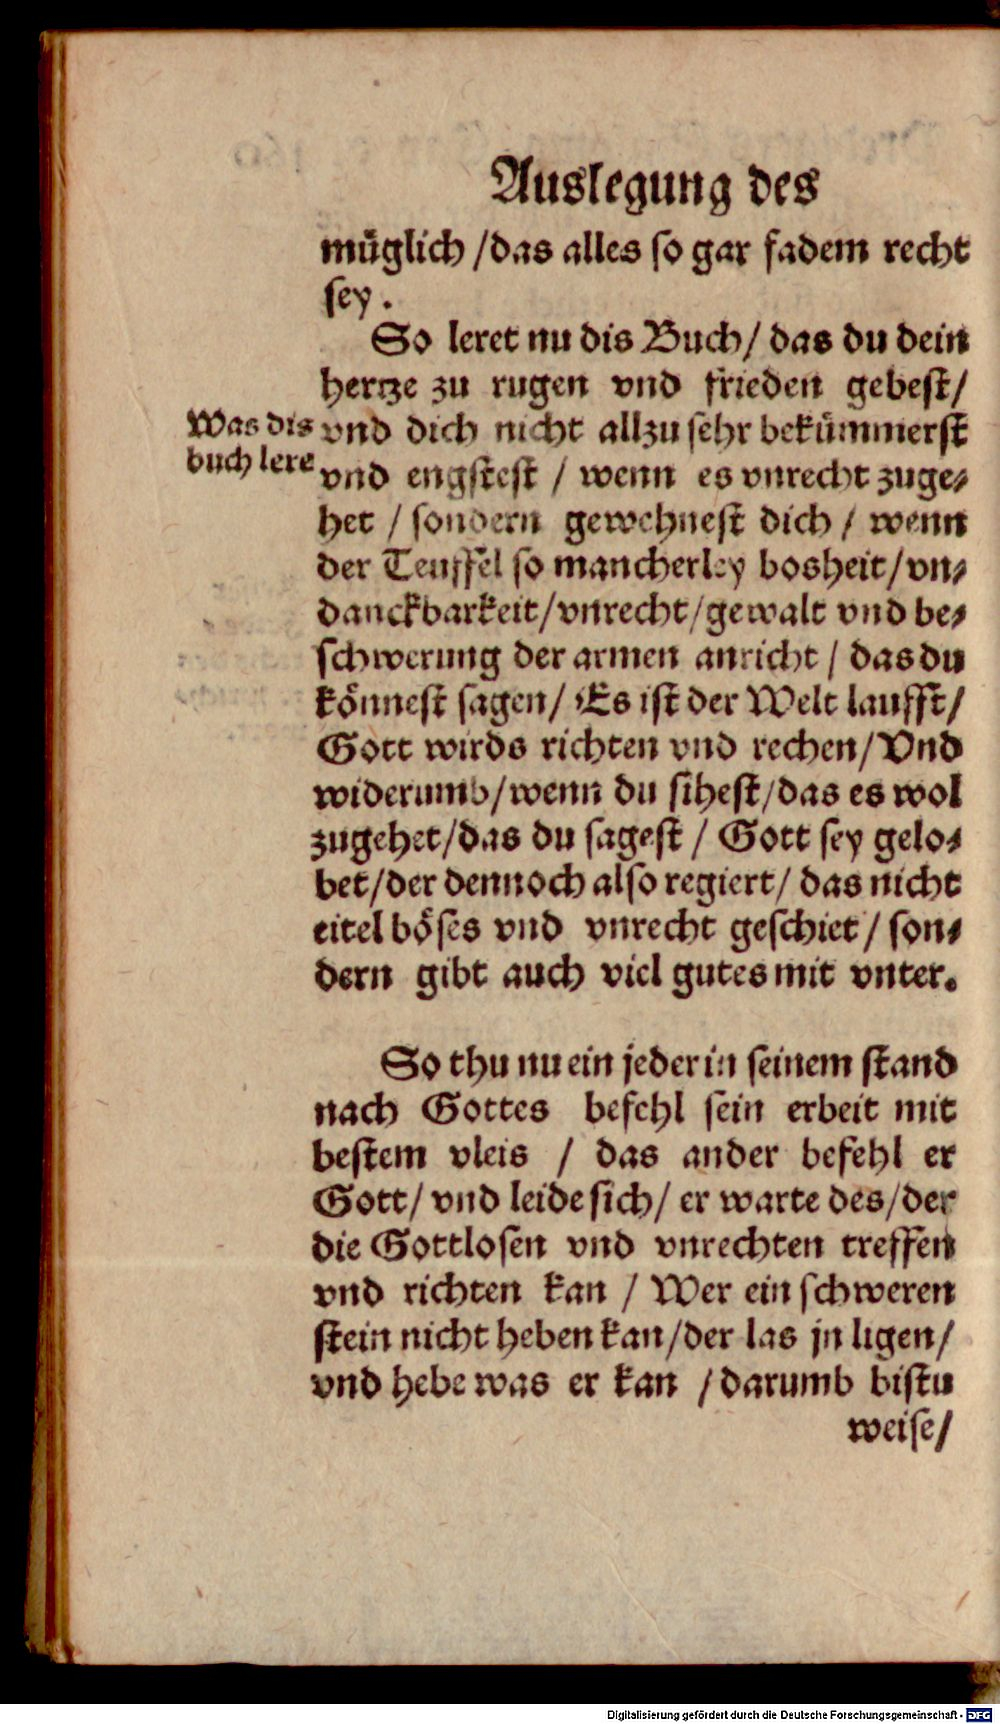 Auslegung des
müglich /das alles so gar fadem recht
sey .
So leret nu dis Buch/ das du dein
hertze zu rugen vnd frieden gebest/
Was dis
buch lere
vnd dich nicht allzu sehr bekümmerst
vnd engstest / wenn es vnrecht zuge-
het / sondern gewehnest dich / wenn
der Teuffel so mancherley bosheit/vn-
danckbarkeit/vnrecht/gewalt vnd be-
schwerung der armen anricht / das du
könnest sagen/ Es ist der Welt laufft/
Gott wirds richten vnd rechen/Vnd
widerumb/wenn du sihest/das es wol
zugehet/das du sagest / Gott sey gelo-
bet/der dennoch also regiert/ das nicht
eitel böses vnd vnrecht geschiet / son-
dern gibt auch viel gutes mit vnter.
So thu nu ein jeder in seinem stand
nach Gottes befehl sein erbeit mit
bestem vleis / das ander befehl er
Gott/ vnd leide sich/ er warte des/der
die Gottlosen vnd vnrechten treffen
vnd richten kan / Wer ein schweren
stein nicht heben kan/der las jn ligen/
vnd hebe was er kan /darumb bistu
weise/
Digitalisierung gefördert durch die Deutsche Forschungsgemeinschaft - DFG